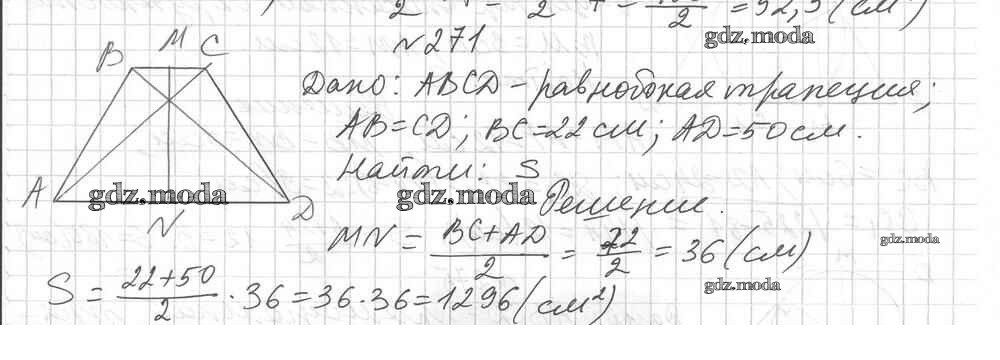 = 92,5 (см)
gdz.moda
N 271
B M C
Дано: ABCD – равнобокая трапеция;
AB=CD; BC=22 см; AD=50 см.
Найти: S
A D
gdz.moda gdz.moda
Решение.
N
MN = (BC+AD)/2 = 72/2 = 36 (см)
gdz.moda
gdz.moda
S = (22+50)/2 · 36 = 36·36 = 1296 (см²)